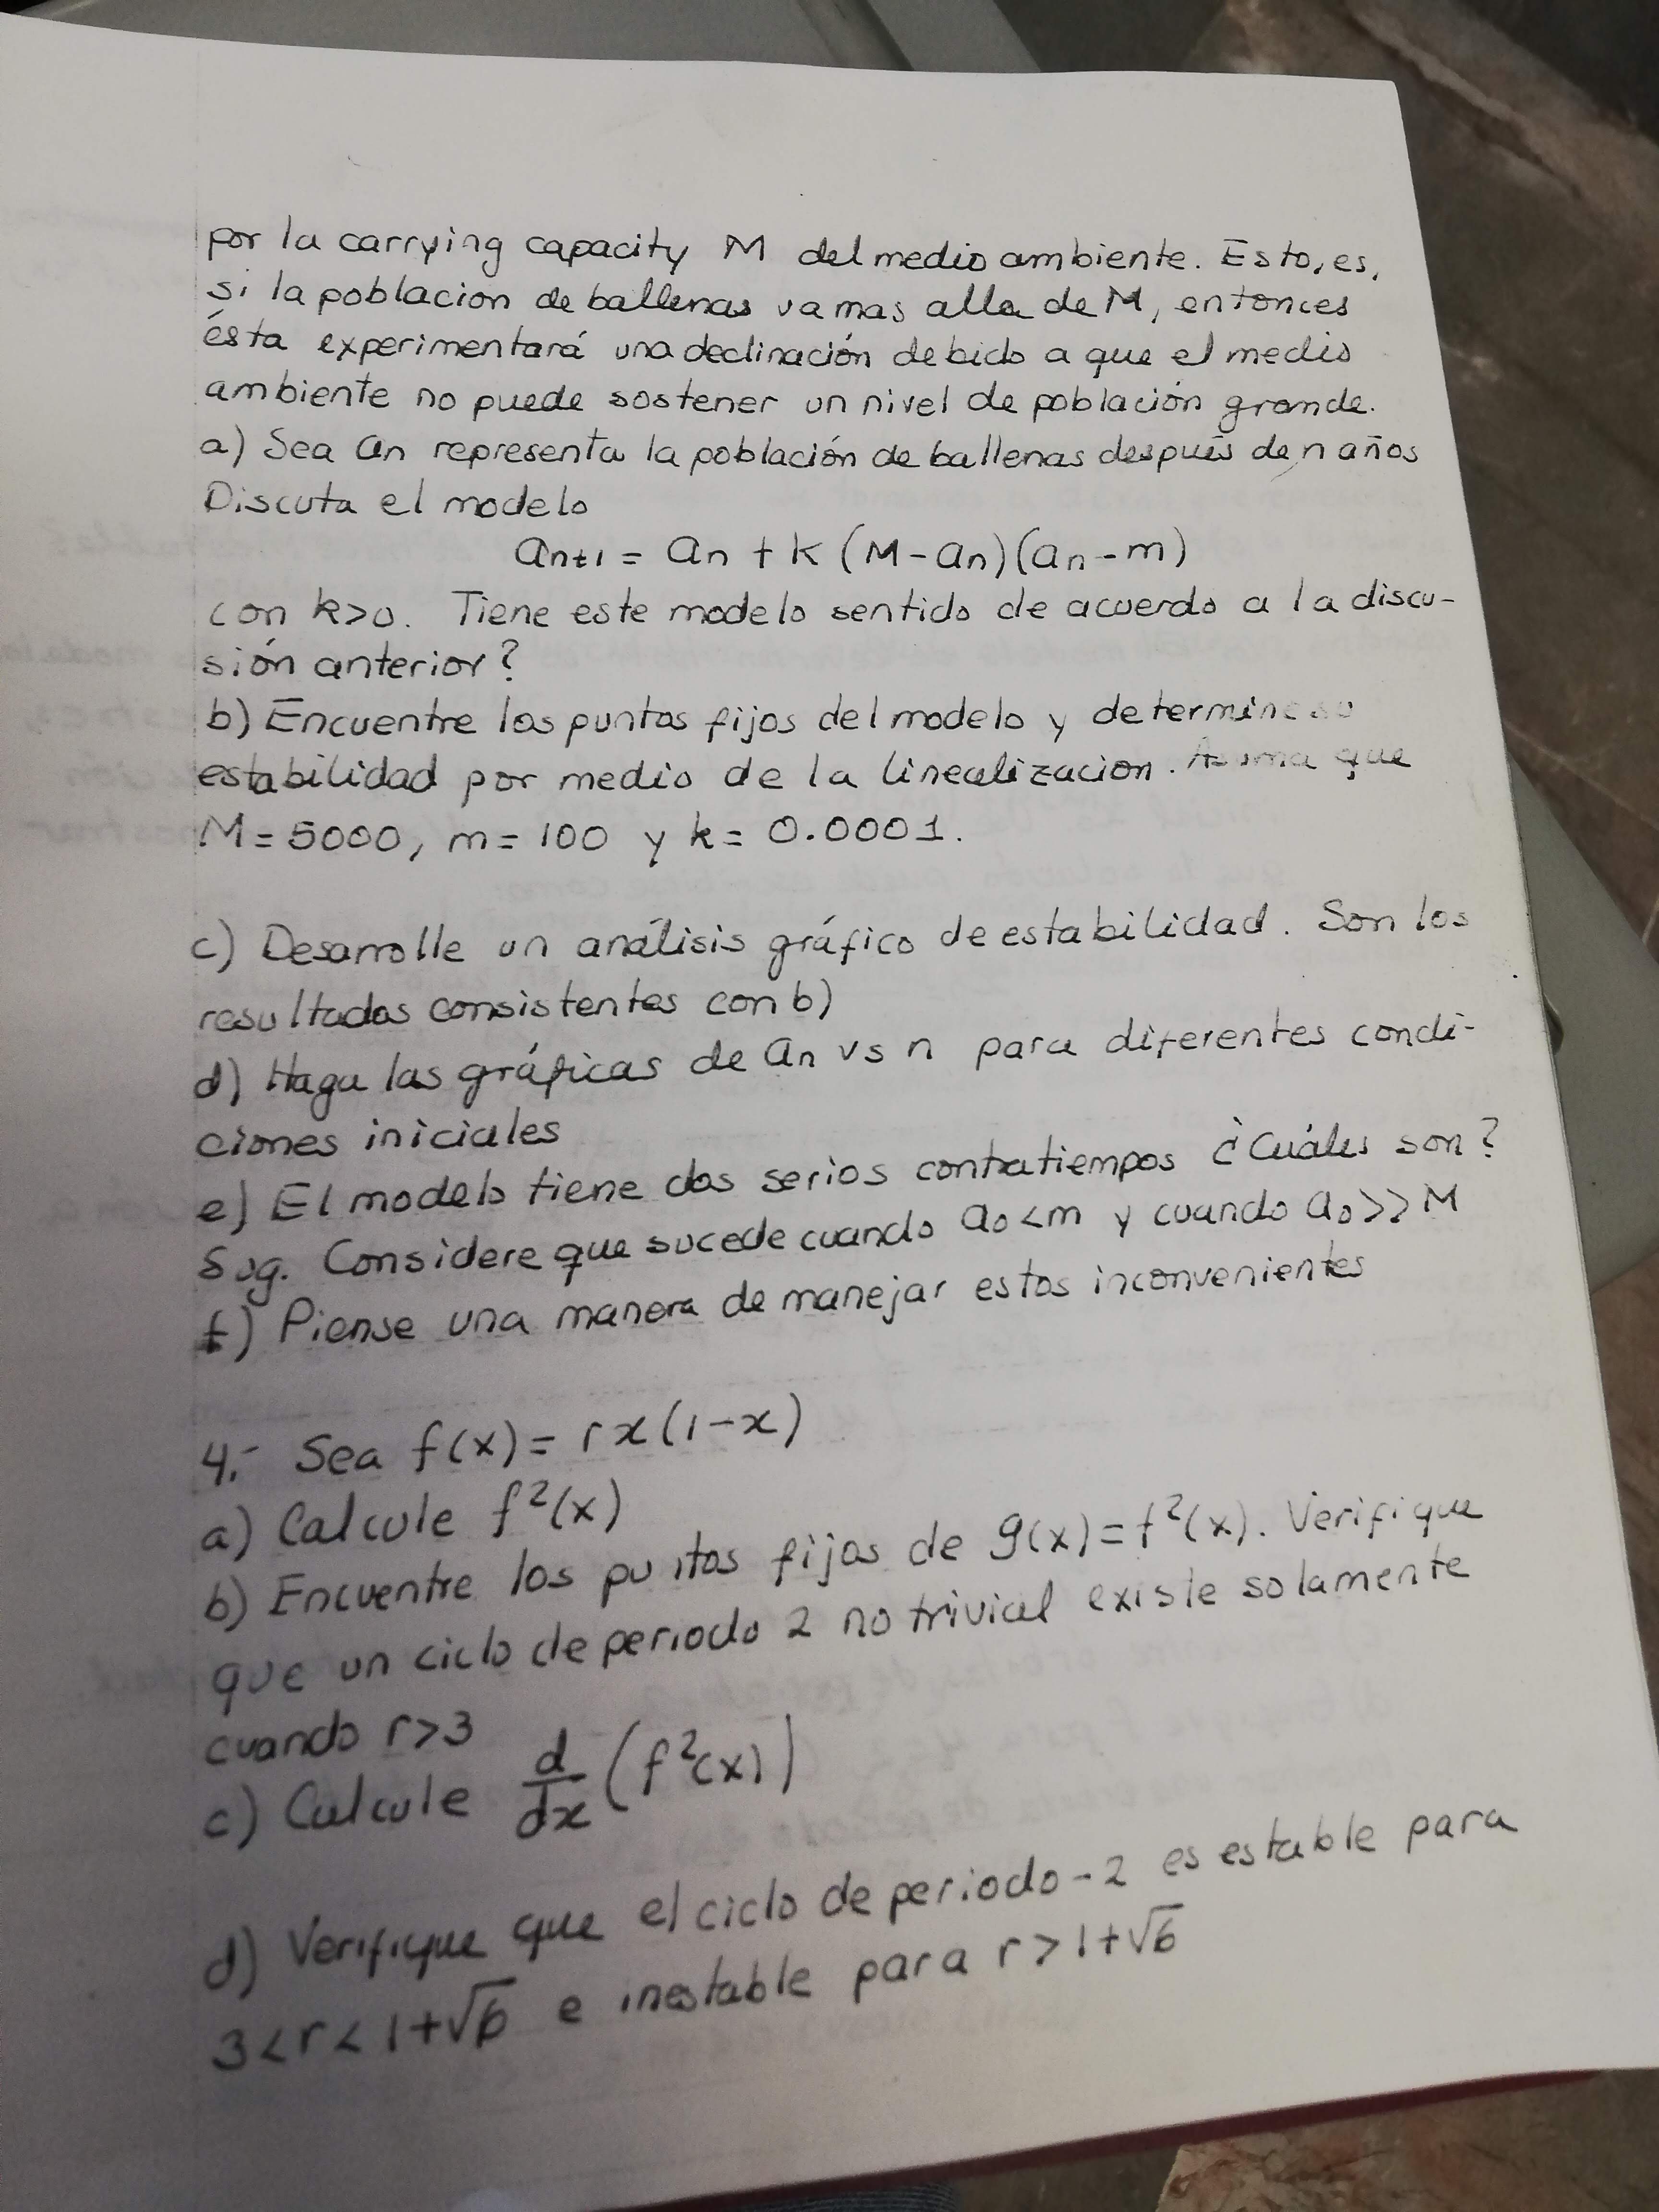 por la carrying capacity M del medio ambiente. Esto, es,
si la poblacion de ballenas va mas alla de M, entonces
ésta experimentará una declinación debido a que el medio
ambiente no puede sostener un nivel de población grande.
a) Sea an representa la población de ballenas después de n años
Discuta el modelo
an+1 = an + k (M-an)(an-m)
con k>0. Tiene este modelo sentido de acuerdo a la discu-
sión anterior?
b) Encuentre los puntos fijos del modelo y determine su
estabilidad por medio de la linealización. Asuma que
M=5000, m=100 y k=0.0001.
c) Desarrolle un análisis gráfico de estabilidad. Son los
resultados consistentes con b)
d) Haga las gráficas de an vs n para diferentes condi-
ciones iniciales
e) El modelo tiene dos serios contratiempos ¿Cuáles son?
Sug. Considere que sucede cuando a0<m y cuando a0>>M
f) Piense una manera de manejar estos inconvenientes
4.- Sea f(x)=rx(1-x)
a) Calcule f²(x)
b) Encuentre los puntos fijos de g(x)=f²(x). Verifique
que un ciclo de periodo 2 no trivial existe solamente
cuando r>3
c) Calcule d/dx (f²(x))
d) Verifique que el ciclo de periodo-2 es estable para
3<r<1+√6 e inestable para r>1+√6